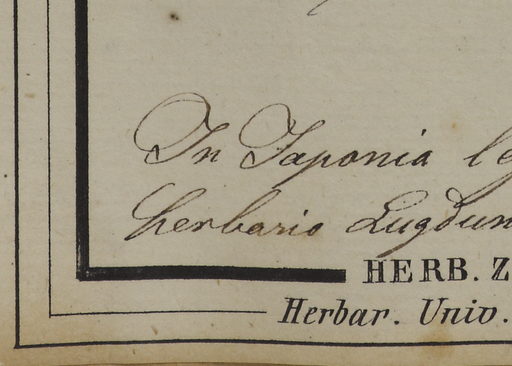 In Japonia leg
herbario Lugdun
HERB. Z
Herbar. Univ.